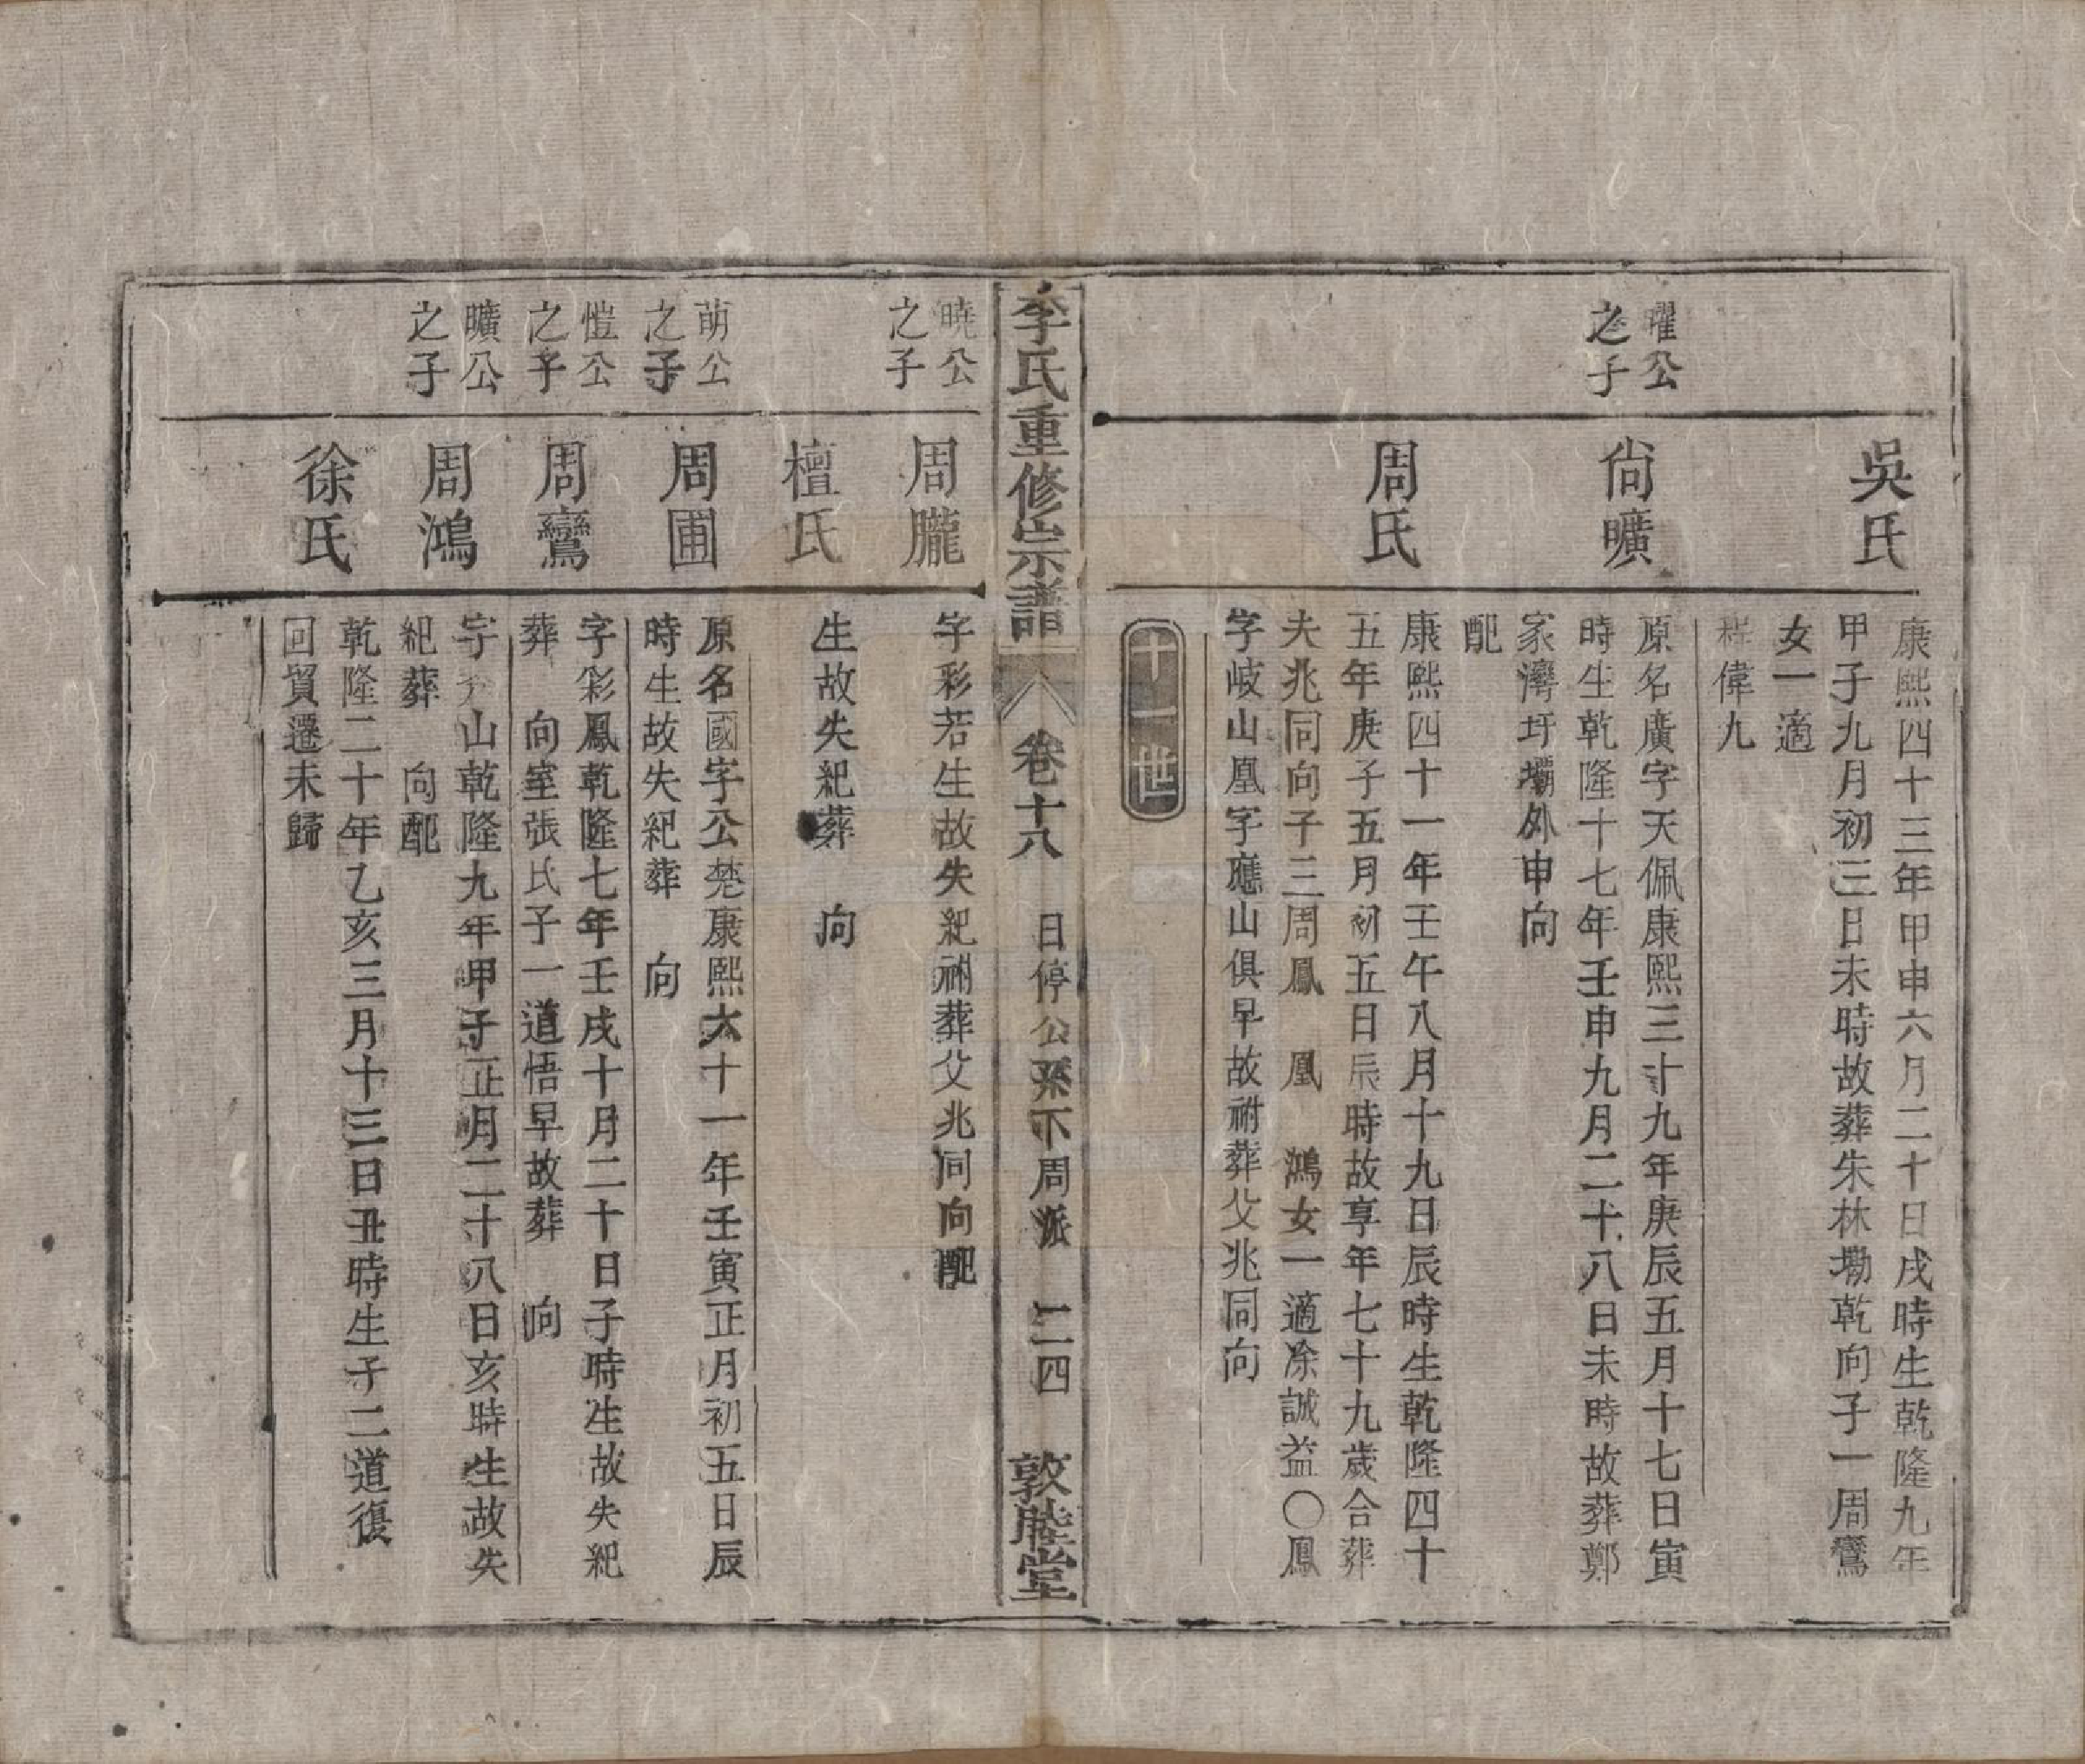 吳氏
康熙四十三年甲申六月二十日戌時生乾隆九年
甲子九月初三日未時故葬朱林墈乾向子一周鸞
女一適
程偉九
曜公
之子
尙曠
原名廣字天佩康熙三十九年庚辰五月十七日寅
時生乾隆十七年壬申九月二十八日未時故葬鄭
家灣圩壩外申向
配
周氏
康熙四十一年壬午八月十九日辰時生乾隆四十
五年庚子五月初五日辰時故享年七十九歲合葬
夫兆同向子三周鳳 凰 鴻女一適凃誠益〇鳳
字岐山凰字應山俱早故祔葬父兆同向
十一世
李氏重修宗譜 卷十八 日停公系下周派 二四 敦睦堂
曉公
之子
周朧
字彩若生故失紀祔葬父兆同向配
檀氏
生故失紀葬 向
萌公
之子
周圃
原名國字公楚康熙六十一年壬寅正月初五日辰
時生故失紀葬 向
愷公
之子
周鸞
字彩鳳乾隆七年壬戌十月二十日子時生故失紀
葬 向室張氏子一道悟早故葬 向
曠公
之子
周鴻
字 山乾隆九年甲子正月二十八日亥時生故失
紀葬 向配
徐氏
乾隆二十年乙亥三月十三日丑時生子二道復
回貿遷未歸